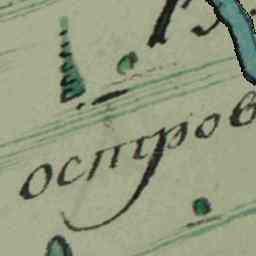 остров